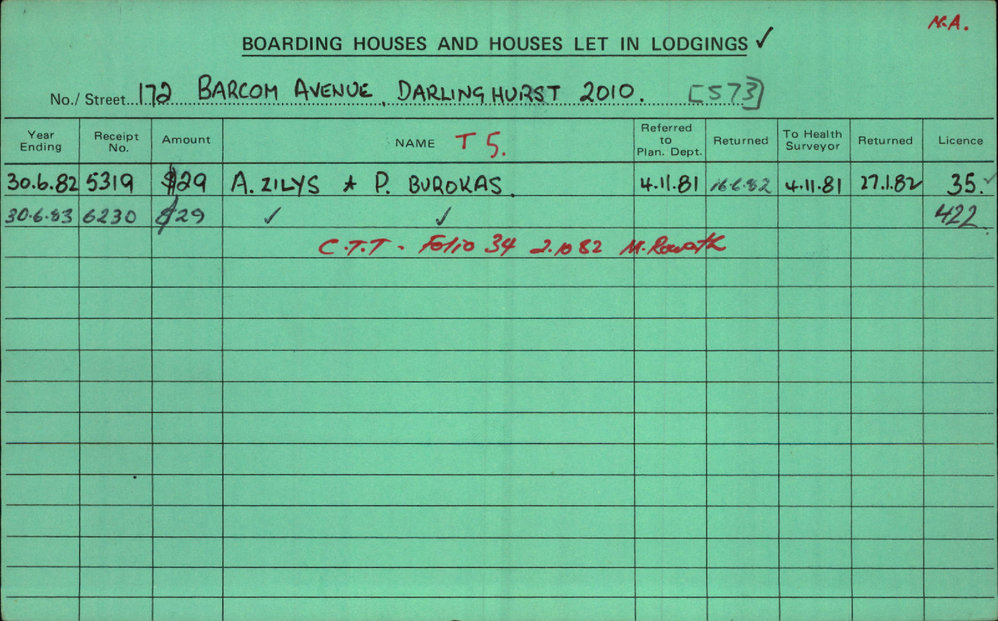 N.A.
BOARDING HOUSES AND HOUSES LET IN LODGINGS ✓
No./ Street 172 BARCOM AVENUE, DARLINGHURST 2010. [573]
Year Ending Receipt No. Amount NAME T 5. Referred to Plan. Dept. Returned To Health Surveyor Returned Licence
30.6.82 5319 $29 A. ZILYS & P. BUROKAS. 4.11.81 16.6.82 4.11.81 27.1.82 35. ✓
30.6.83 6230 $29 ✓ ✓ 422.
C.T.T - Folio 34 2.10 82